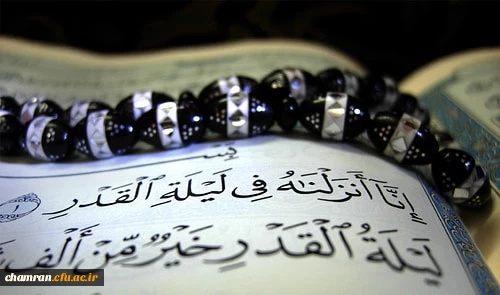 إِنَّا أَنزَلْنَٰهُ فِى لَيْلَةِ ٱلْقَدْرِ ١
لَيْلَةُ ٱلْقَدْرِ خَيْرٌ مِّنْ أَلْفِ
chamran.cfu.ac.ir